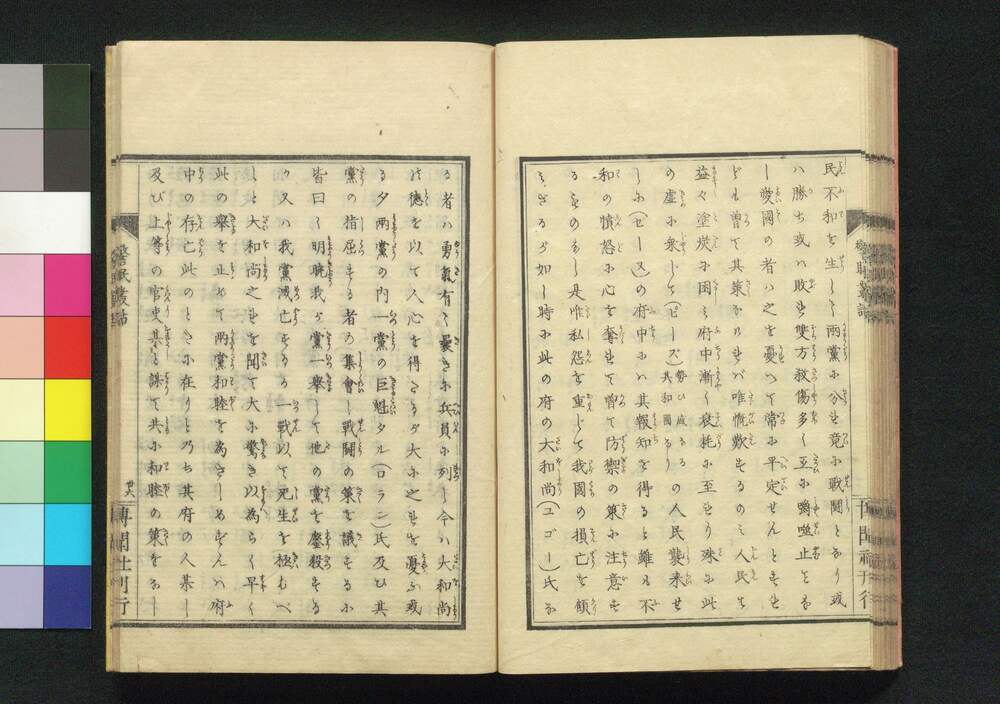 民不和を生じて兩黨に分れ竟に戰鬪となり或
ハ勝ち或ハ敗れ雙方殺傷多く互に嚼噬止まな
し愛國の者ハ之を憂へて常に平定せんとすれ
ども曾て其策なけれバ唯慨歎するのミ人民も
益々塗炭に困ミ府中漸く衰耗に至れり殊に此
の虚に乘じて(ピース)勢ひ盛なるの共和國なりの人民襲来せ
しに(ゼース)の府中にハ其報知を得ると雖も不
和の憤怒に心を奪れて曾て防禦の策に注意す
るものなし是唯私怨を重じて我國の損亡を顧
ミざるが如し時に此の府の大和尚(ユゴー)氏な
る者ハ勇氣有て曩きに兵員に列し今ハ大和尚
の德を以て人心を得たるが大に之れを憂ふ或
る夕兩黨の內一黨の巨魁タル(ロラン)氏及び其
黨の指屈する者の集會し戰鬪の策を議するに
皆曰く明曉我が黨一擧して他の黨を鏖殺する
か又ハ我黨滅亡するか一戰以て死生を極むべ
しと大和尚之れを聞て大に驚き以為らく早く
此の擧を止めて兩黨和睦を為さしめずんハ府
中の存亡此のときに在りと乃ち其府の人某し
及び上等の官吏某と謀て共に和睦の策をなし
叢話
廿八
博聞社刊行